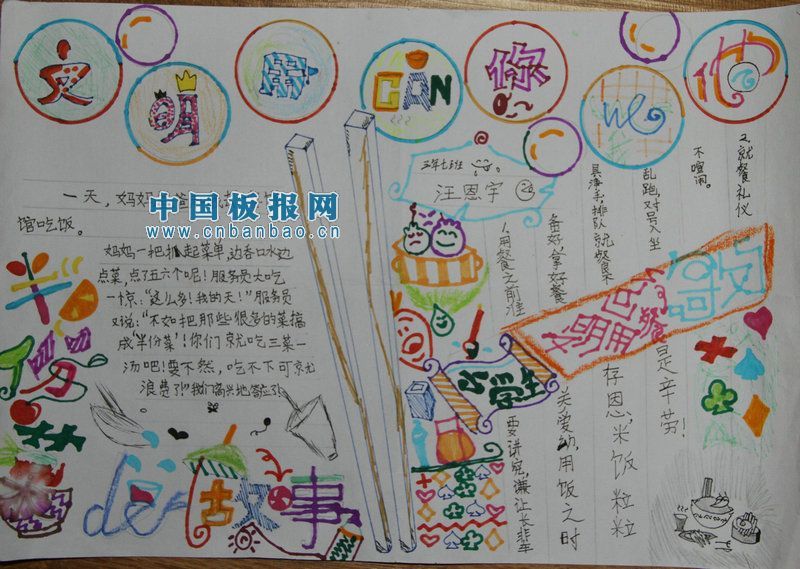 文明用CAN你我他
三年七班
汪恩宇 24
一天，妈妈
馆吃饭。
中国板报网
www.cnbanbao.cn
妈妈一把抓起菜单，边吞口水边
点菜，点了五六个呢！服务员大吃
一惊：“这么多！我的天！”服务员
又说：“不如把那些很多的菜搞
成‘半份菜’！你们就吃三菜一
汤吧！要不然，吃不下可就
浪费了！”我们高兴地答应了。
半份菜
de
小故事
2.就餐礼仪
不喧闹。
乱跑，对号入坐
具，洗手，排队就餐，不
备好，拿好餐
1.用餐之前准
文明用餐
是辛劳！
存恩，米饭粒粒
关爱幼，用饭之时
要讲究，谦让长辈